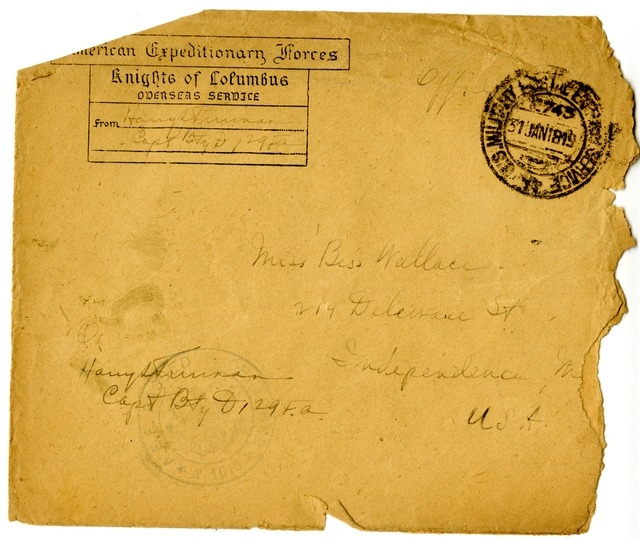 American Expeditionary Forces
Knights of Columbus
OVERSEAS SERVICE
From Harry S Truman
Capt Bty D 129 F.a.
743
31 JAN 1819
SERVICE
Miss Bess Wallace
219 Delaware St
Independence, Mo
U S A
Harry S Truman
Capt Bty D, 129 F.a.